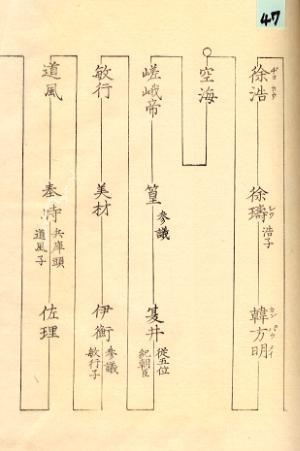 47
徐浩
徐璹 浩子
韓方明
カン パウ メイ
空海
嵯峨帝
篁 参議
夏井 從五位
紀朝臣
敏行
美材
伊衡 参議
敏行子
道風
奉時 兵庫頭
道風子
佐理